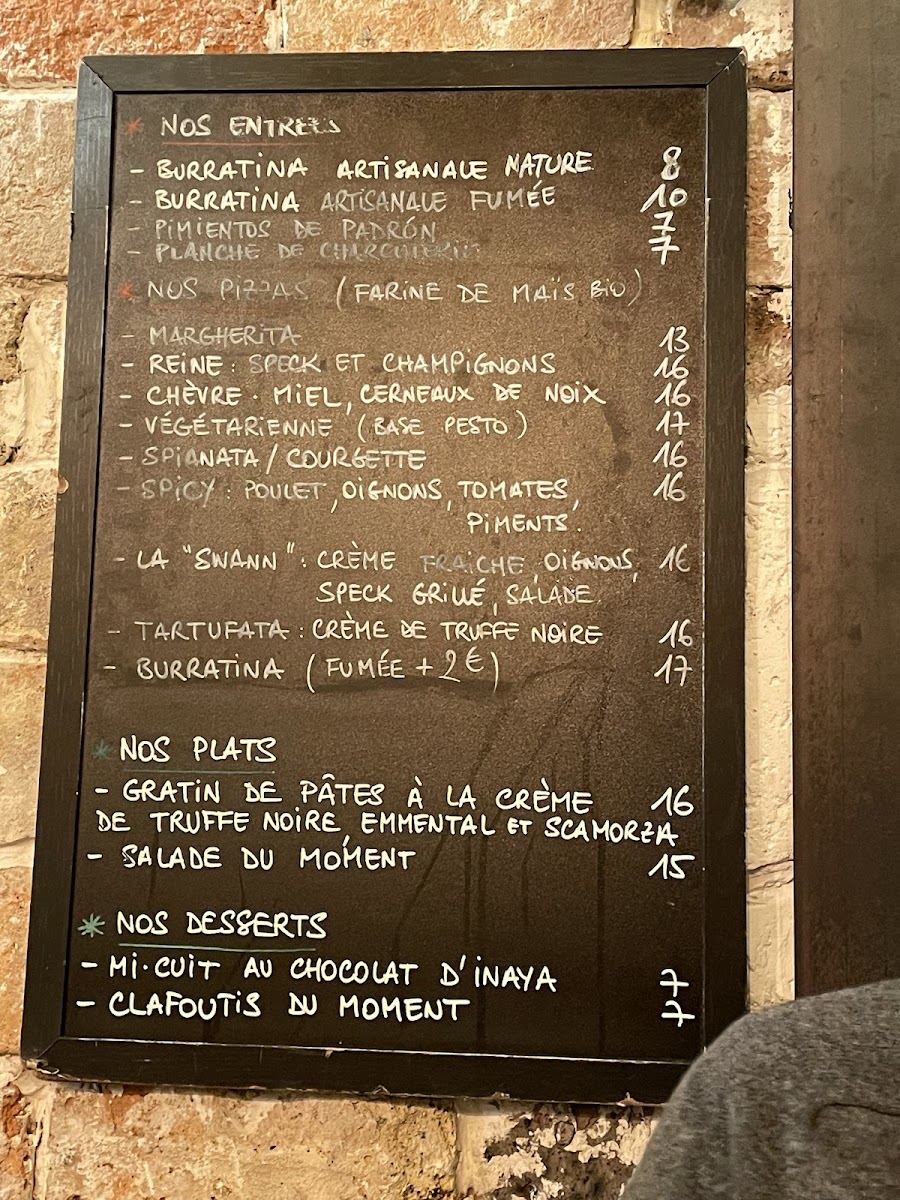 * NOS ENTREES
- BURRATINA ARTISANALE NATURE 8
- BURRATINA ARTISANALE FUMÉE 10
- PIMIENTOS DE PADRÓN 7
- PLANCHE DE CHARCUTERIE 7
* NOS PIZZAS (FARINE DE MAÏS BIO)
- MARGHERITA 13
- REINE : SPECK ET CHAMPIGNONS 16
- CHÈVRE . MIEL, CERNEAUX DE NOIX 16
- VÉGÉTARIENNE (BASE PESTO) 17
- SPIANATA / COURGETTE 16
- SPICY : POULET, OIGNONS, TOMATES, 16
PIMENTS.
- LA "SWANN" : CRÈME FRAICHE, OIGNONS, 16
SPECK GRILLÉ, SALADE.
- TARTUFATA : CRÈME DE TRUFFE NOIRE 16
- BURRATINA (FUMÉE + 2€) 17
* NOS PLATS
- GRATIN DE PÂTES À LA CRÈME 16
DE TRUFFE NOIRE, EMMENTAL ET SCAMORZA
- SALADE DU MOMENT 15
* NOS DESSERTS
- MI-CUIT AU CHOCOLAT D'INAYA 7
- CLAFOUTIS DU MOMENT 7